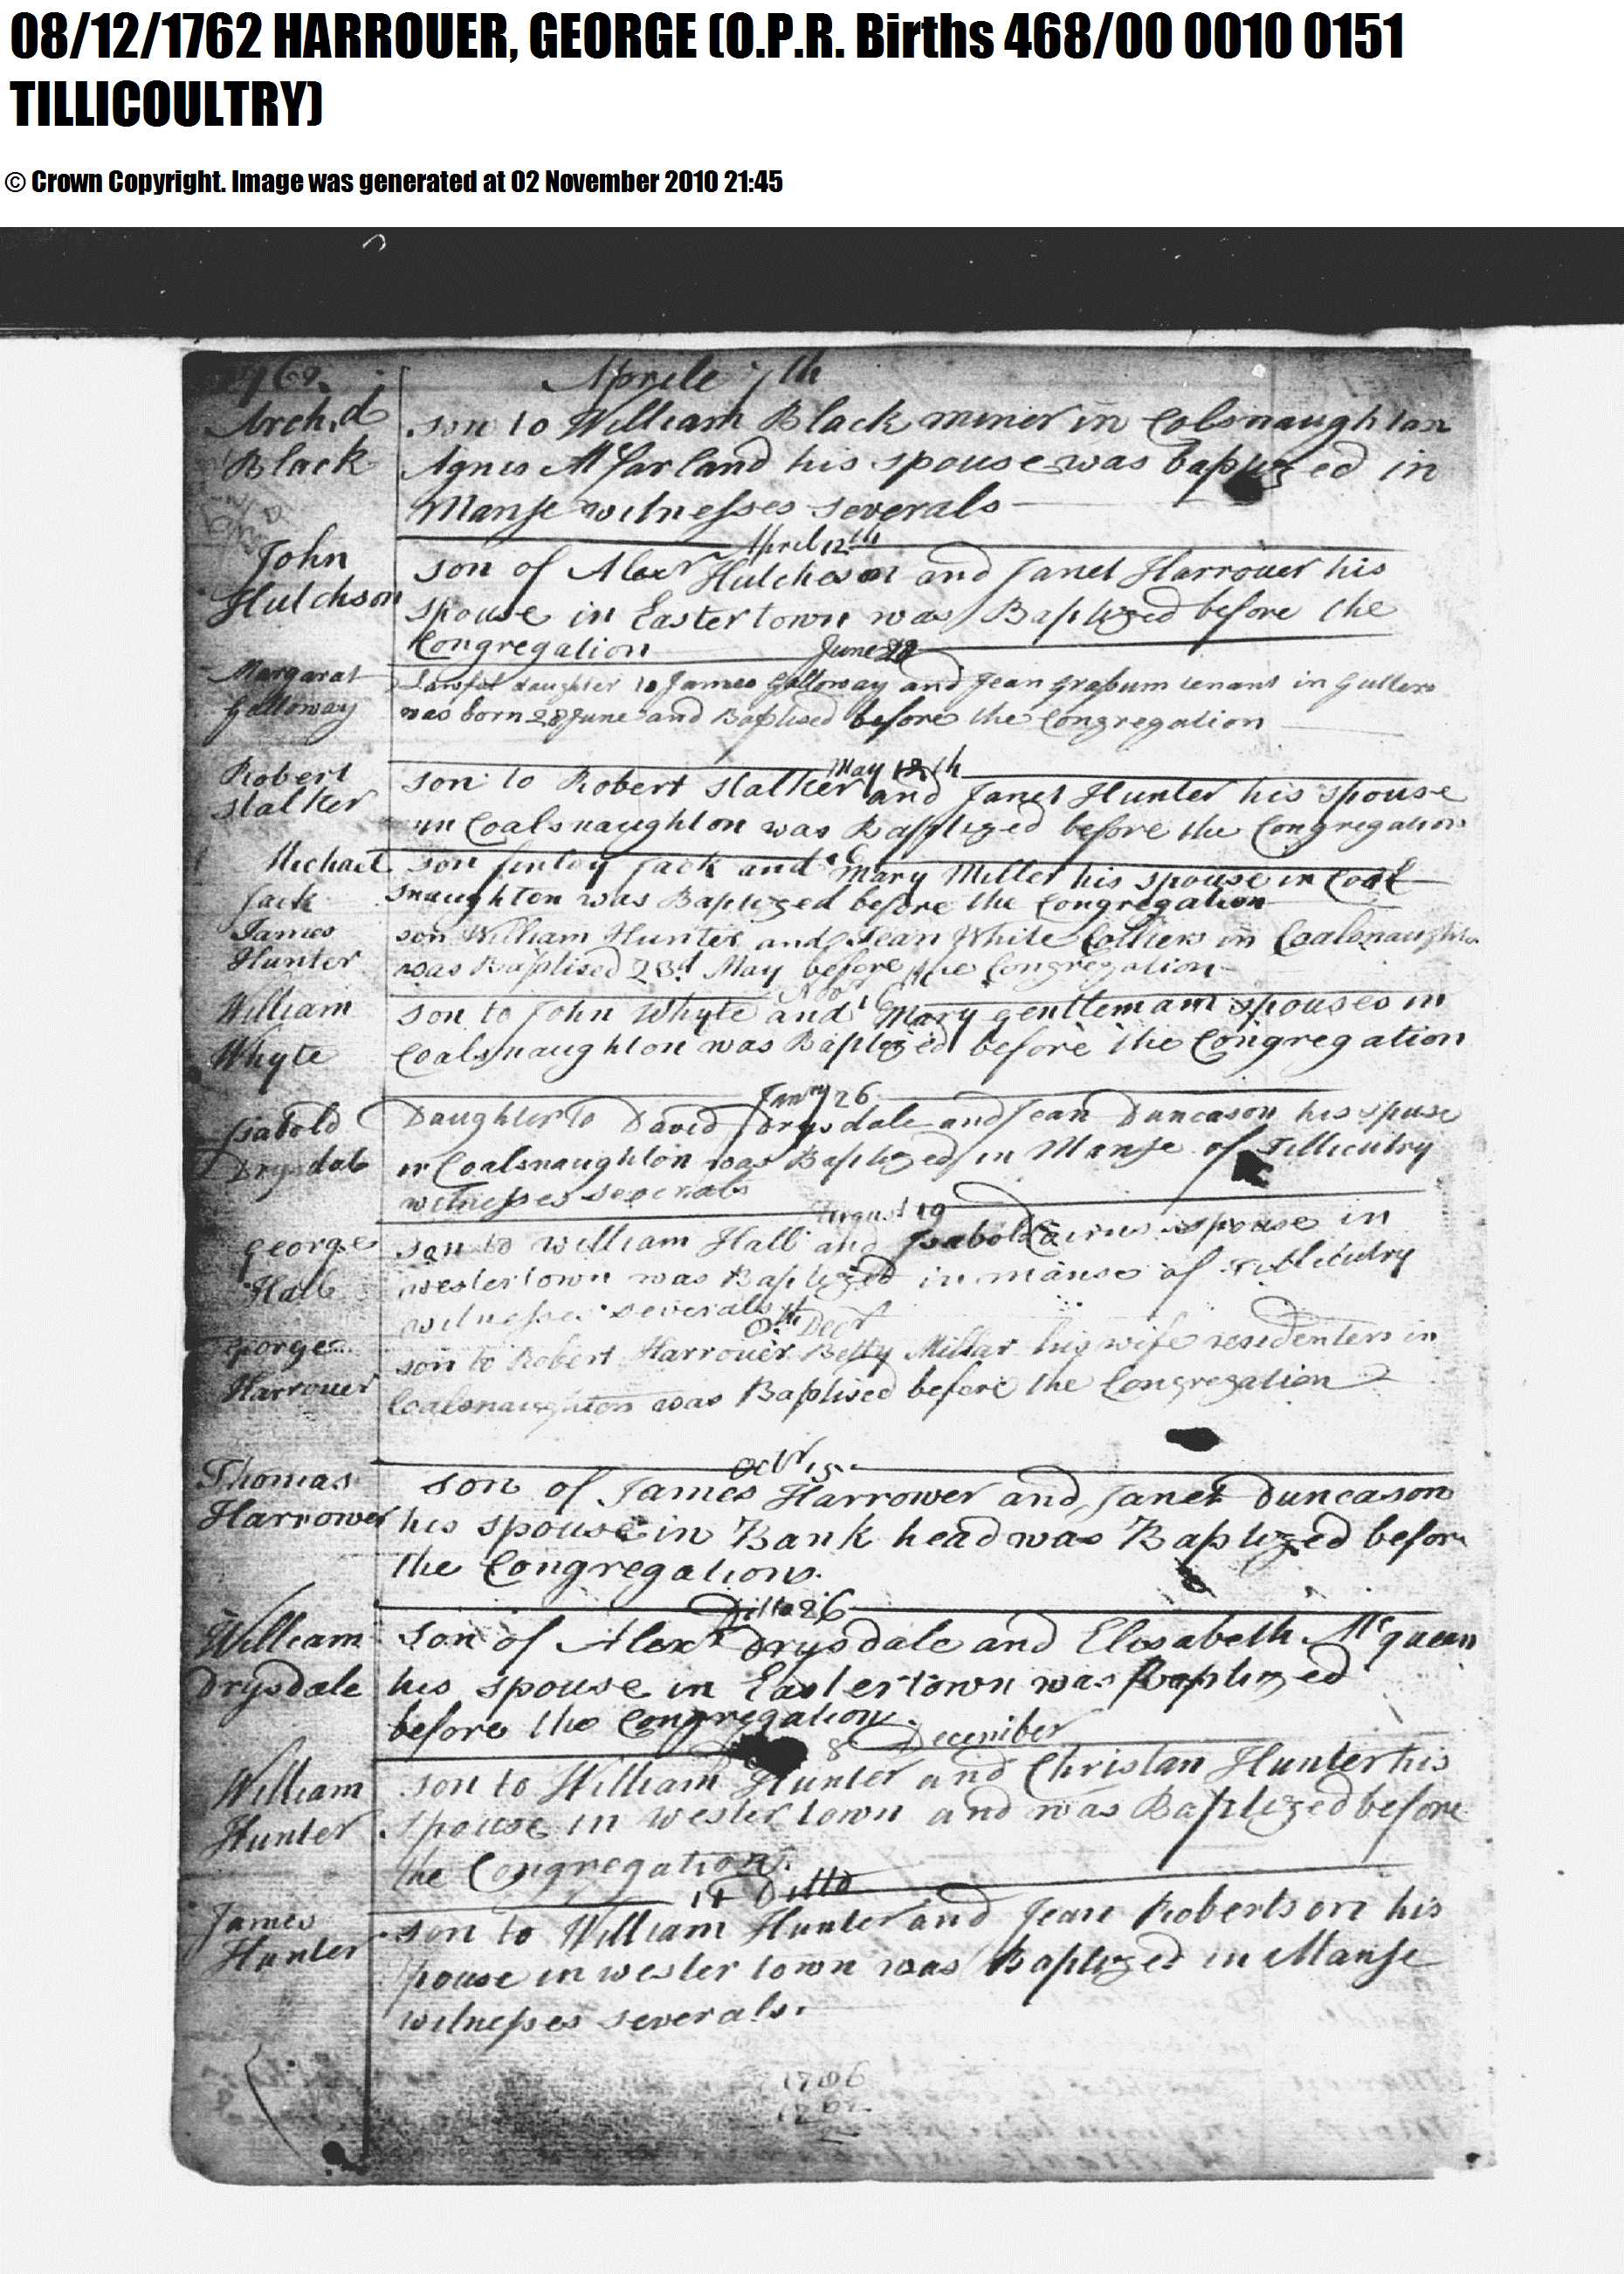 08/12/1762 HARROUER, GEORGE (O.P.R. Births 468/00 0010 0151
TILLICOULTRY)
© Crown Copyright. Image was generated at 02 November 2010 21:45
Aprile 7th
Arch.d son to William Black miner in Colsnaughton
Black Agnes McFarland his spouse was baptized in
Manse witnesses severals
April 12th
John son of Alexr Hutcheson and Janet Harrouer his
Hutchson spouse in Eastertown was Baptized before the
Congregation
June 28
Margarat Lawful daughter to James Galloway and Jean Grasum tenant in
Galloway was born 28 June and Baptised before the Congregation
May 18th
Robert son to Robert Stalker and Janet Hunter his spouse
Stalker in Coalsnaughton was Baptized before the Congregation
Michael son finloy Jack and Mary Miller his spouse in Coal
Jack snaughton was Baptized before the Congregation
James son William Hunter and Jean White Colliers in Coalsnaughton
Hunter was Baptised 23d May before the Congregation
William son to John Whyte and Mary gentleman spouses in
Whyte Coalsnaughton was Baptized before the Congregation
Janry 26
Isabold Daughter to David Drysdale and Jean Duncason his spuse
Drysdale in Coalsnaughton was Baptized in Manse of Tillicutry
witnesses severals
August 19
George son to William Hall and Isabold Cairns spouse in
Hall westertown was Baptized in manse of Tillicutry
witnesses severals
8th Decr
George son to Robert Harrouer Betty Millar his wife residenters in
Harrouer Coalsnaughton was Baptised before the Congregation
Octbr 15
Thomas son of James Harrower and Janet Duncason
Harrower his spouse in Bank head was Baptized before
the Congregation.
Ditto 26
William son of Alexr Drysdale and Elisabeth Mcqueen
Drysdale his spouse in Eastertown was Baptized
before the Congregation.
8 December
William son to William Hunter and Christan Hunter his
Hunter spouse in wester town and was Baptized before
the Congregation.
14 Ditto
James son to William Hunter and Jean Robertson his
Hunter spouse in wester town was Baptized in Manse
witnesses severals.
1762